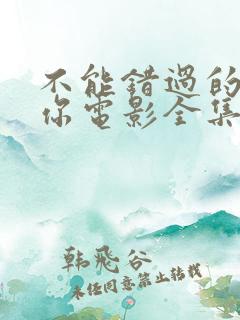 不能错过的
你电影全集
韩飛谷
未经同意禁止转载